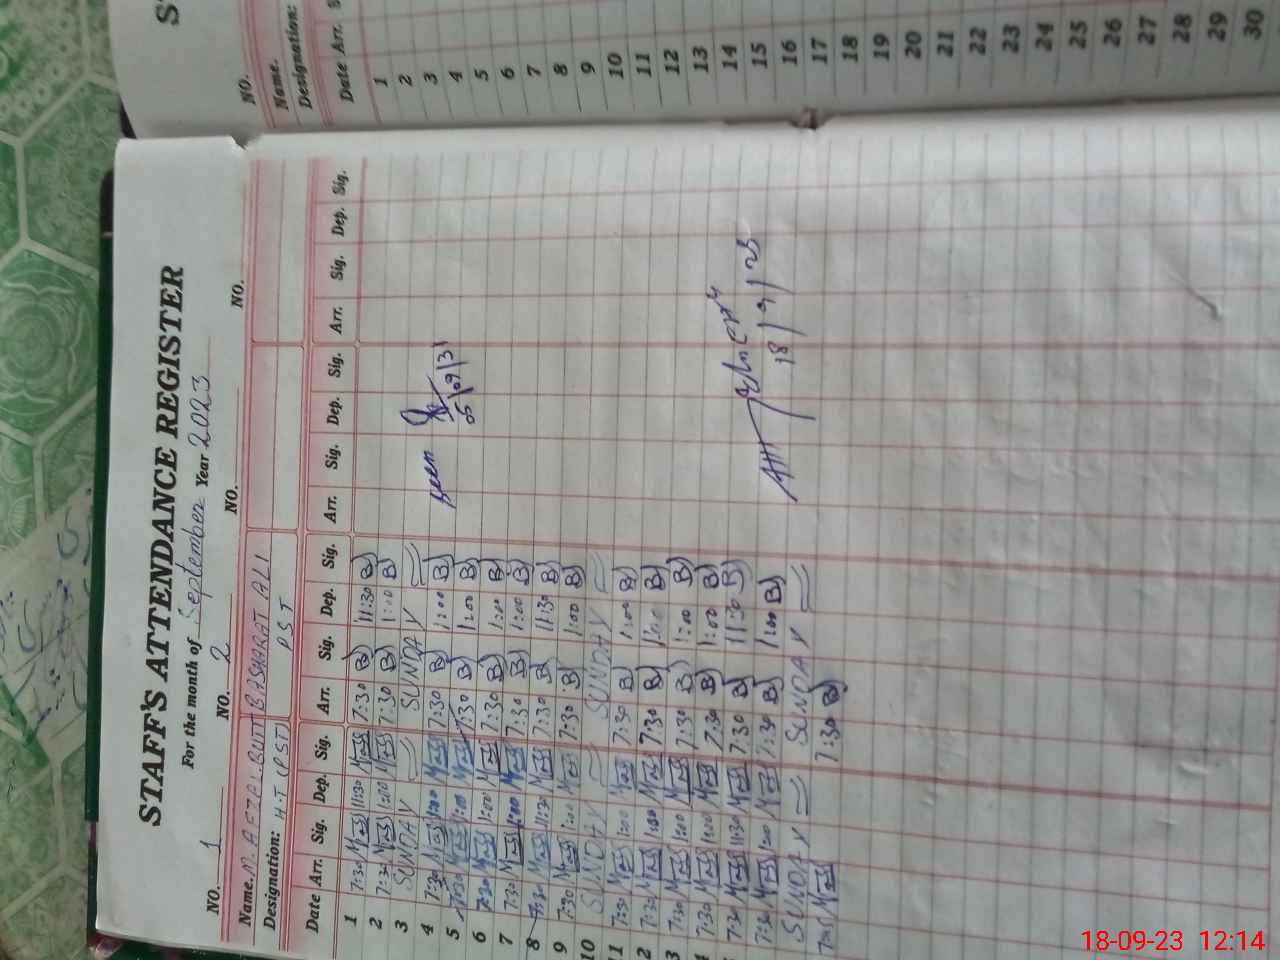 STAFF'S ATTENDANCE REGISTER
For the month of September Year 2023
NO. 1 NO. 2 NO. NO.
Name. M. AFZAL BUTT BASHARAT ALI
Designation: H.T (PST) PST
Date Arr. Sig. Dep. Sig. Arr. Sig. Dep. Sig. Arr. Sig. Dep. Sig. Arr. Sig. Dep. Sig.
1 7:30 11:30 7:30 B) 11:30 B)
2 7:30 1:00 7:30 B) 1:00 B)
3 SUNDAY SUNDAY
4 7:30 1:00 7:30 B) 1:00 B) seen
5 7:30 1:00 7:30 B) 1:00 B)
6 7:30 1:00 7:30 B) 1:00 B)
7 7:30 1:00 7:30 B) 1:00 B)
8 7:30 11:30 7:30 B) 11:30 B)
9 7:30 1:00 7:30 B) 1:00 B)
10 SUNDAY SUNDAY
11 7:30 1:00 7:30 B) 1:00 B)
2 7:30 1:00 7:30 B) 1:00 B)
3 7:30 1:00 7:30 B) 1:00 B)
7:30 1:00 7:30 B) 1:00 B)
7:30 11:30 7:30 B) 11:30 B)
7:30 1:00 7:30 B) 1:00 B)
SUNDAY SUNDAY 18/9/23
7:30 B)
NO.
Name.
Designation:
Date Arr. S
1
2
3
4
5
6
7
8
9
10
11
12
13
14
15
16
17
18
19
20
21
22
23
24
25
26
27
28
29
30
18-09-23 12:14